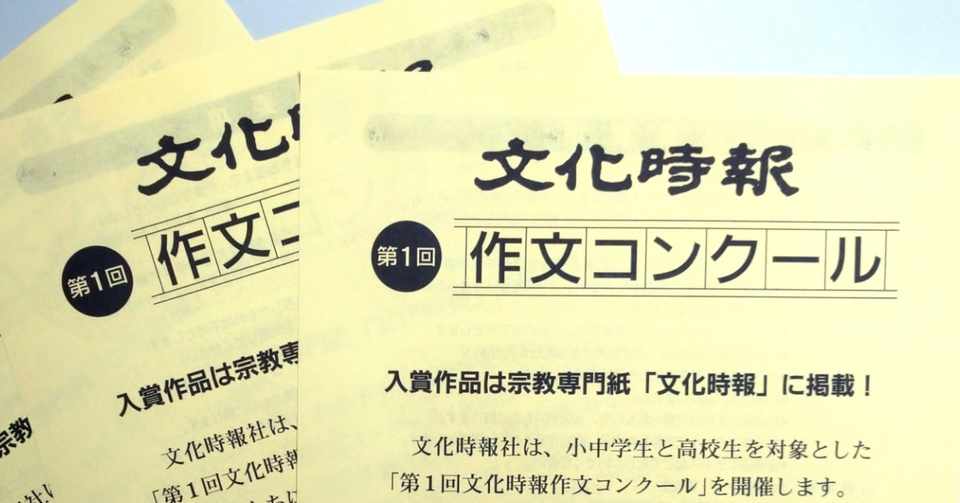 文化時報
第1回
作文コンクール
入賞作品は宗教専門紙「文化時報」に掲載！
文化時報社は、小中学生と高校生を対象とした
「第1回文化時報作文コンクール」を開催します。
文化
第1回
作文コ
入賞作品は宗教専
文化時報社は、
「第1回文化時報
宗教